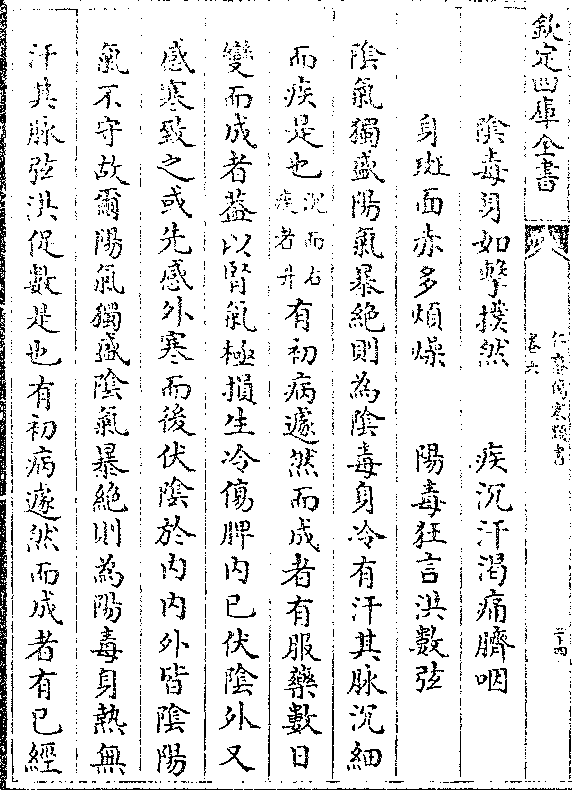 欽定四庫全書
仁齋傷寒類書
卷六
二十四
陰毒身如擊撲然 疾沉汗渴痛臍咽
身斑面赤多煩燥 陽毒狂言洪數弦
陰氣獨盛陽氣暴絶則為陰毒身冷有汗其脉沉細
而疾是也沉而右疾者丹有初病遽然而成者有服藥數日
變而成者葢以腎氣極損生冷傷脾内已伏陰外又
感寒致之或先感外寒而後伏陰於内内外皆陰陽
氣不守故爾陽氣獨盛陰氣暴絶則為陽毒身熱無
汗其脉弦洪促數是也有初病遽然而成者有已經